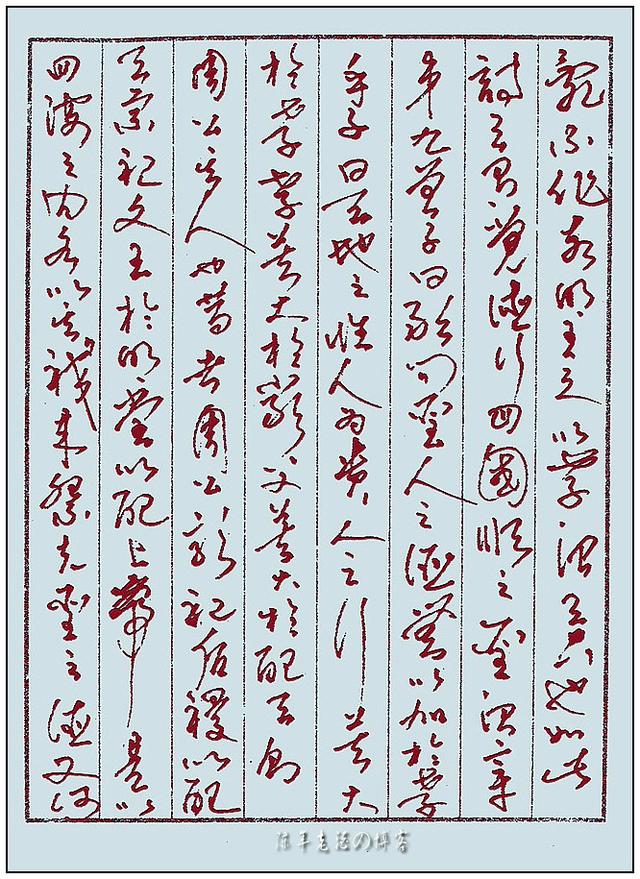 亂不作故明王之以孝治天下也如此
詩云有覺德行四國順之聖治章
第九曾子曰敢問聖人之德無以加於孝
乎子曰天地之性人為貴人之行莫大
於孝孝莫大於嚴父莫大於配天則
周公其人也昔者周公郊祀后稷以配
天宗祀文王於明堂以配上帝是以
四海之内各以其職來祭夫聖之德又何